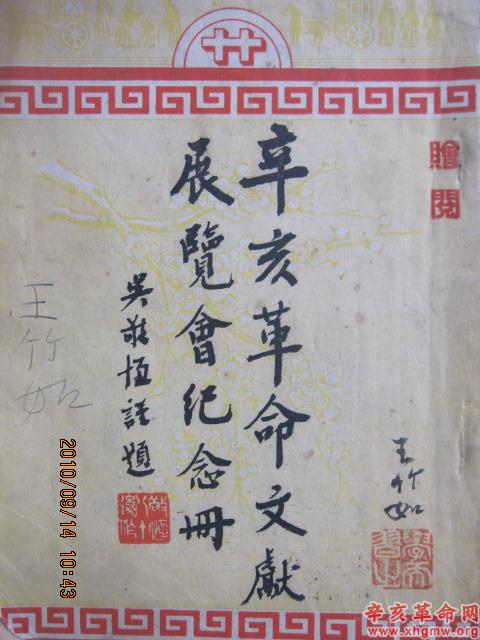 廿
贈閱
辛亥革命文獻
展覽會纪念冊
吳敬恆謹題
王竹如
王竹如
2010/09/14 10:43
辛亥革命网
www.xhgmw.org